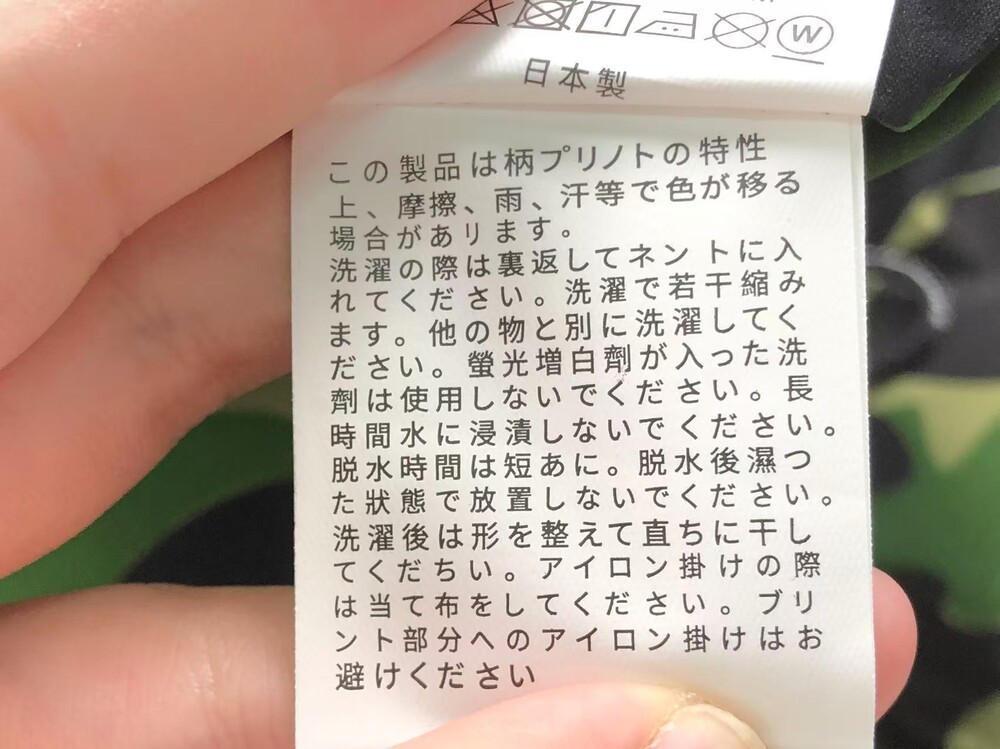 W
日本製
この製品は柄プリノトの特性
上、摩擦、雨、汗等で色が移る
場合があリます。
洗濯の際は裏返してネントに入
れてください。洗濯で若干縮み
ます。他の物と別に洗濯してく
ださい。螢光増白劑が入った洗
劑は使用しないでください。長
時間水に浸漬しないでください。
脱水時間は短あに。脱水後濕つ
た狀態で放置しないでください。
洗濯後は形を整えて直ちに干し
てくだちい。アイロン掛けの際
は当て布をしてください。ブリ
ント部分へのアイロン掛けはお
避けください